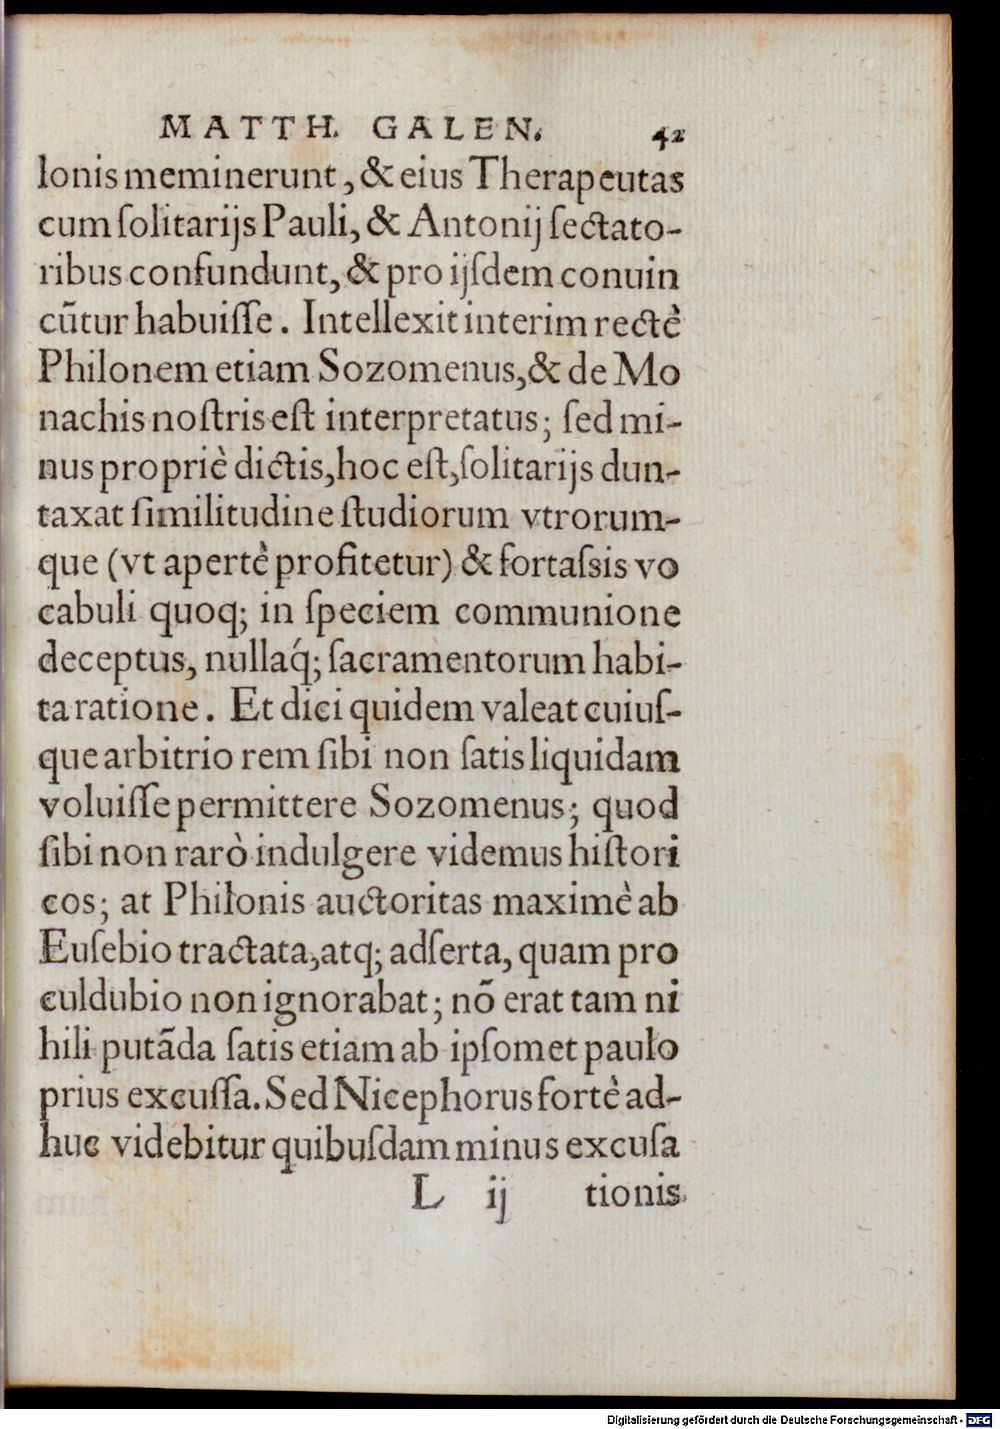 MATTH. GALEN. 42
lonis meminerunt, & eius Therapeutas
cum ſolitarijs Pauli, & Antonij ſectato-
ribus confundunt, & pro ijſdem conuin
cūtur habuiſſe. Intellexit interim rectè
Philonem etiam Sozomenus, & de Mo
nachis noſtris eſt interpretatus; ſed mi-
nus propriè dictis, hoc eſt, ſolitarijs dun-
taxat ſimilitudine ſtudiorum vtrorum-
que (vt apertè profitetur) & fortaſsis vo
cabuli quoq; in ſpeciem communione
deceptus, nullaq́; ſacramentorum habi-
ta ratione. Et dici quidem valeat cuiuſ-
que arbitrio rem ſibi non ſatis liquidam
voluiſſe permittere Sozomenus; quod
ſibi non rarò indulgere videmus hiſtori
cos; at Philonis auctoritas maximè ab
Euſebio tractata, atq; adſerta, quam pro
culdubio non ignorabat; nō erat tam ni
hili putāda ſatis etiam ab ipſomet paulo
prius excuſſa. Sed Nicephorus fortè ad-
huc videbitur quibuſdam minus excuſa
L ij tionis
Digitalisierung gefördert durch die Deutsche Forschungsgemeinschaft - DFG